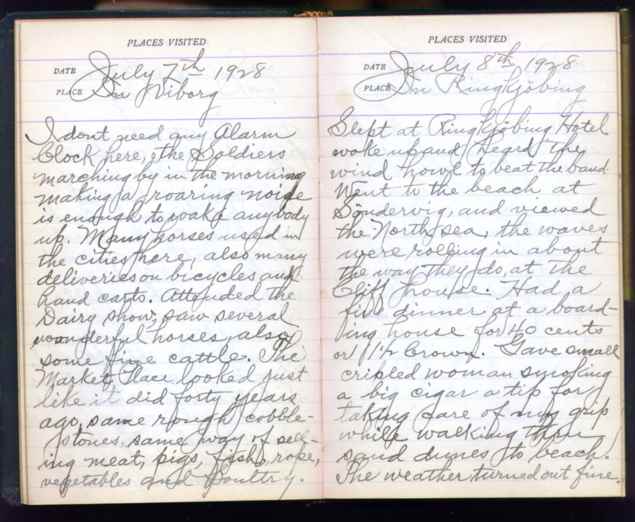 PLACES VISITED
DATE July 7th 1928
PLACE In Viborg
I dont need any Alarm
Clock here, the Soldiers
marching by in the morning
making a roaring noise
is enough to wake anybody
up. Many horses used in
the cities here, also many
deliveries on bicycles and
hand carts. Attended the
Dairy show, saw several
wonderful horses, also
some fine cattle. The
Market Place looked just
like it did forty years
ago, same rough cobble-
stones, same way of sell-
ing meat, pigs, fish, rope,
vegetables and poultry.
PLACES VISITED
DATE July 8th, 1928
PLACE In Ringkjöbing
Slept at Ringkjöbing Hotel
woke up and heard the
wind howl to beat the band.
Went to the beach at
Söndervig, and viewed
the North sea, the waves
were rolling in about
the way they do, at the
Cliff house. Had a
fine dinner at a board-
ing house for 40 cents
or 1 1/2 Crown. Gave small
cripled woman smoking
a big cigar a tip for
taking care of my grip
while walking thru
sand dunes to beach.
The weather turned out fine.